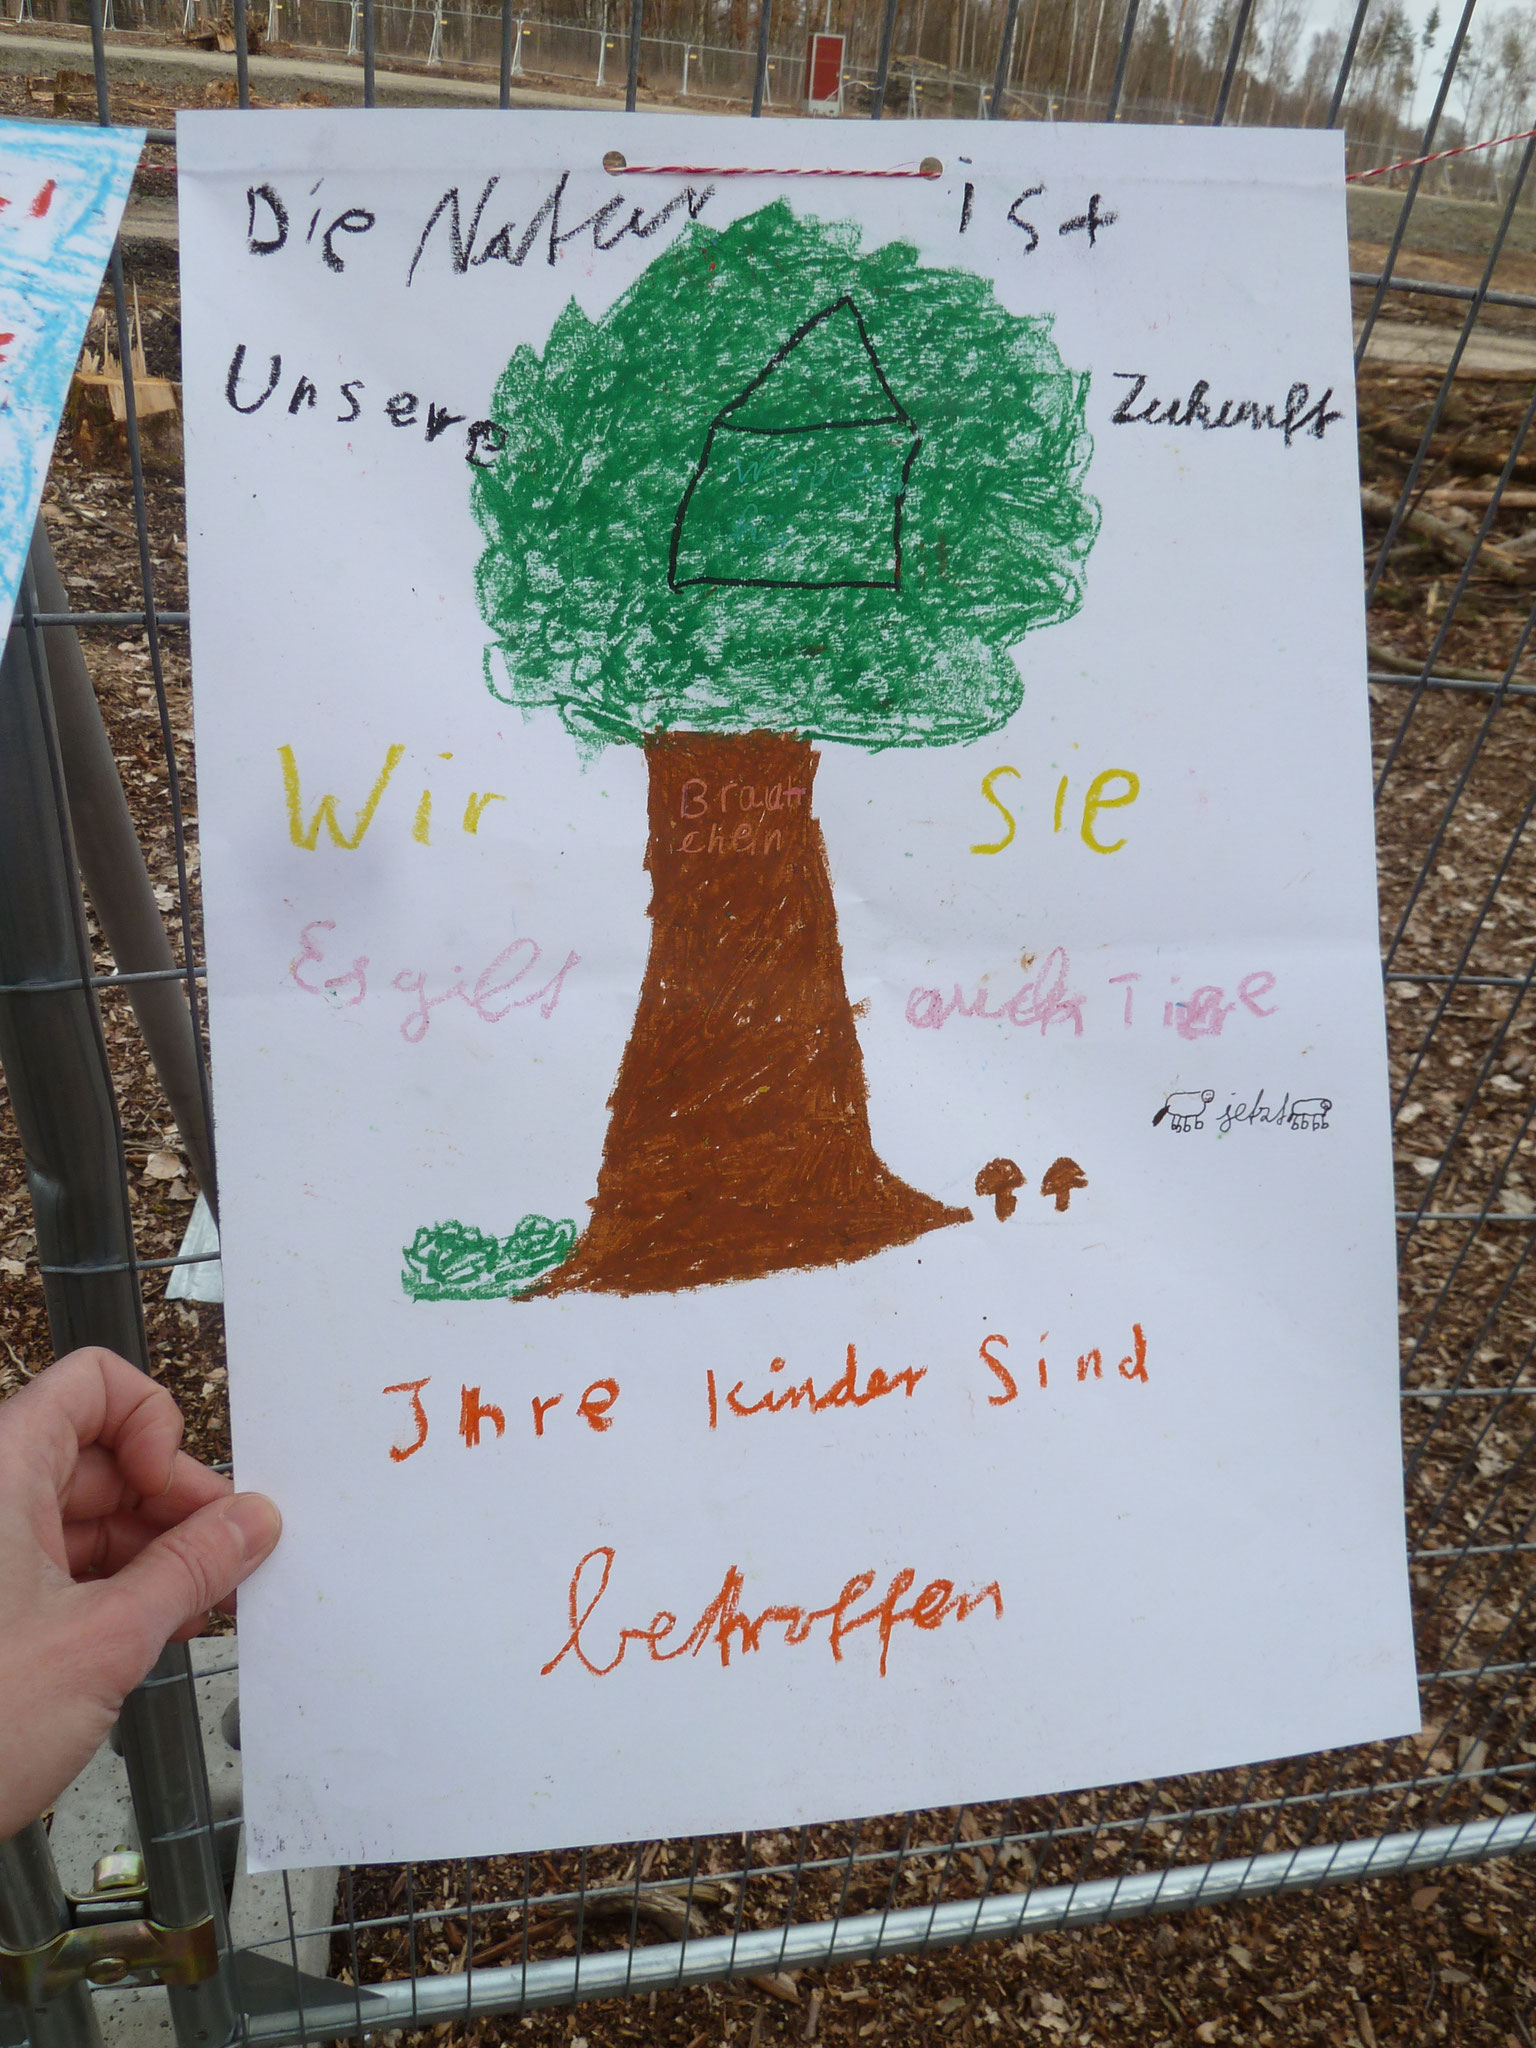 Die Natur ist
Unsere Zukunft
Wir Brau
chen Sie
Es gibt auch Tiere
jetzt
Ihre kinder Sind
betroffen